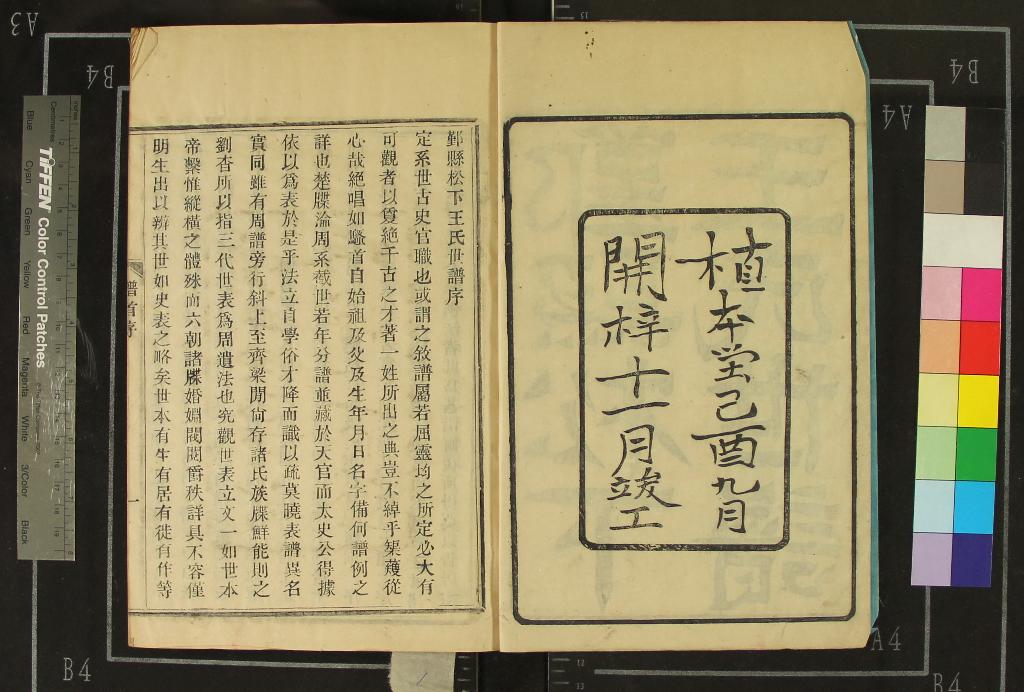 植本堂己酉九月
開梓十一月竣工
鄞縣松下王氏世譜序
定系世古史官職也或謂之敘譜屬若屈靈均之所定必大有
可觀者以敻絕千古之才著一姓所出之典豈不綽乎榘矱從
心哉絕唱如騷首自始祖及父及生年月日名字備何譜例之
詳也楚牒淪周系截世若年分譜並藏於天官而太史公得據
依以爲表於是乎法立自學俗才降而識以疏莫曉表譜異名
實同雖有周譜旁行斜上至齊梁閒尙存諸氏族牒鮮能則之
劉杳所以指三代世表爲周遺法也究觀世表立文一如世本
帝繫惟縱橫之體殊而六朝諸牒婚婣閥閱爵秩詳具不容僅
明生出以辨其世如史表之略矣世本有生有居有徙有作等
譜首序
一
TIFFEN Color Control Patches
Blue
Cyan
Green
Yellow
Red
Magenta
White
3/Color
Black
Centimetres
Inches
A3
B4
B4
A4
B4
A4
B4